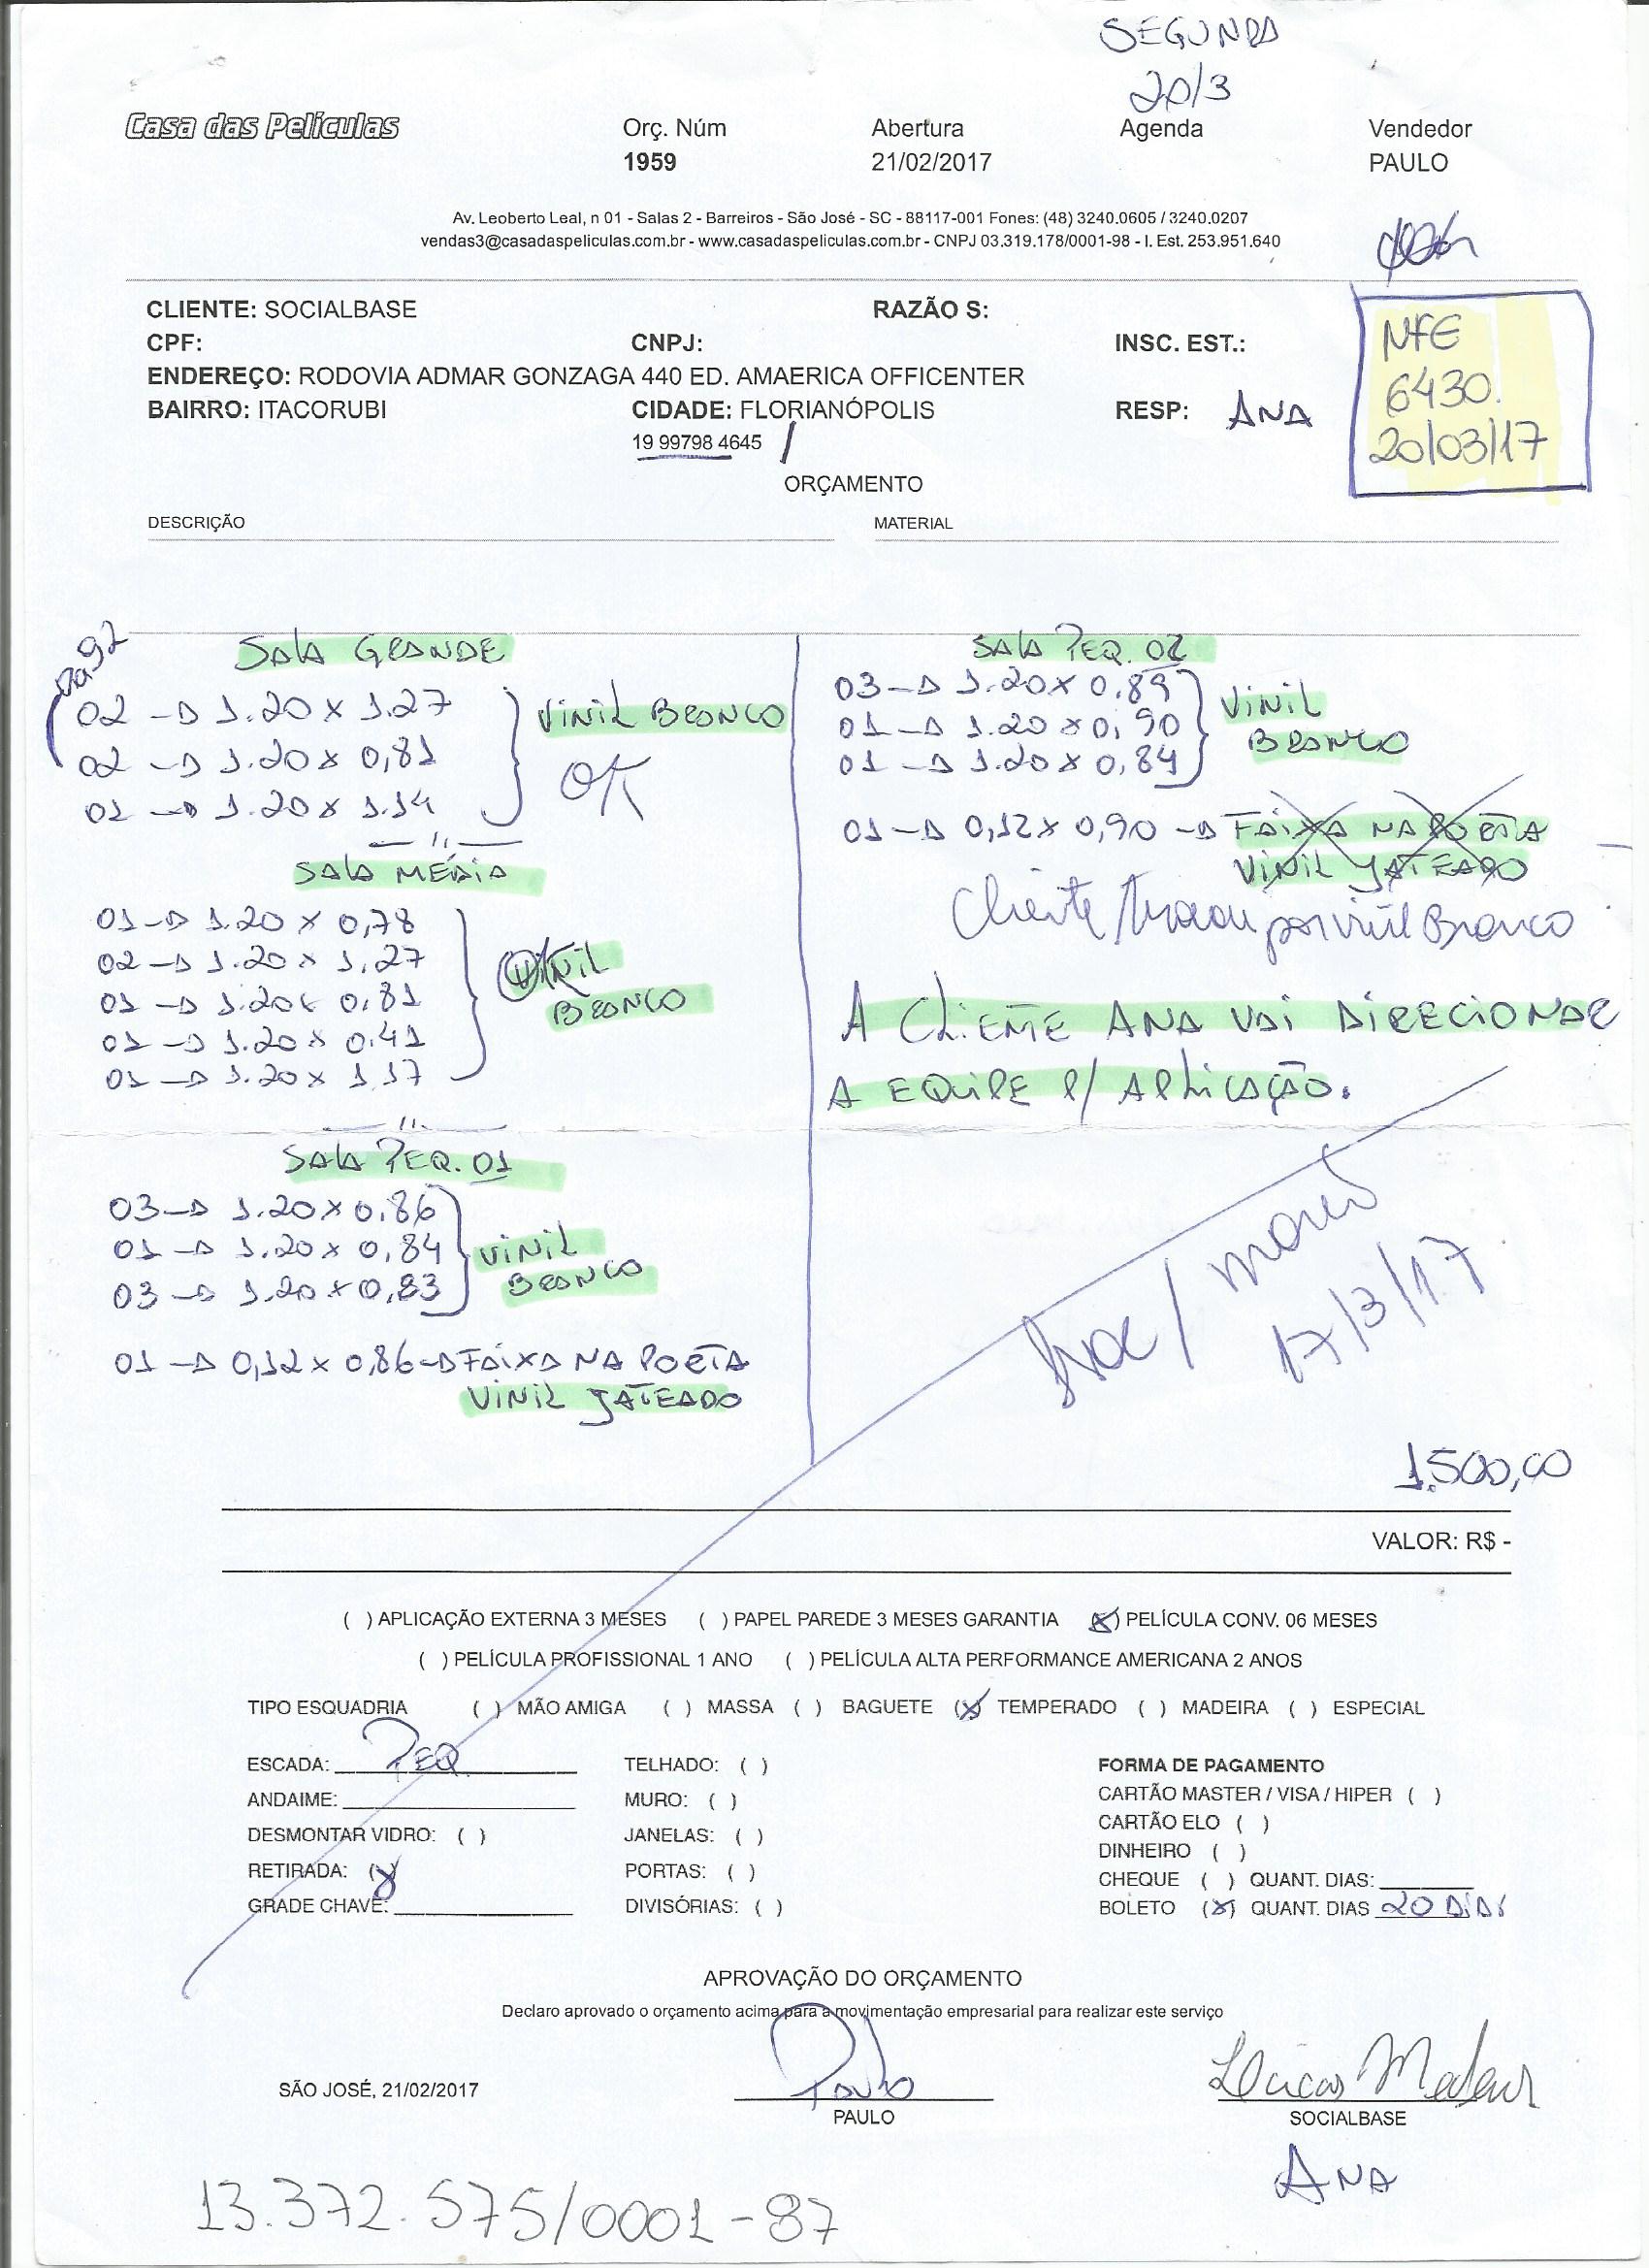 SEGUNDA
20/3
Casa das Películas
Orç. Núm Abertura Agenda Vendedor
1959 21/02/2017 PAULO
Av. Leoberto Leal, n 01 - Salas 2 - Barreiros - São José - SC - 88117-001 Fones: (48) 3240.0605 / 3240.0207
vendas3@casadaspeliculas.com.br - www.casadaspeliculas.com.br - CNPJ 03.319.178/0001-98 - I. Est. 253.951.640
CLIENTE: SOCIALBASE RAZÃO S:
CPF: CNPJ: INSC. EST.:
ENDEREÇO: RODOVIA ADMAR GONZAGA 440 ED. AMAERICA OFFICENTER
BAIRRO: ITACORUBI CIDADE: FLORIANÓPOLIS RESP: ANA
19 99798 4645
NFE
6430.
20/03/17
ORÇAMENTO
DESCRIÇÃO MATERIAL
SALA GRANDE
02 → 1.20 x 1.27
02 → 1.20 x 0,81
01 → 1.20 x 1.14
VINIL BRANCO
OK
SALA MÉDIA
01 → 1.20 x 0,78
02 → 1.20 x 1,27
01 → 1.20 x 0,81
01 → 1.20 x 0.41
01 → 1.20 x 1,17
VINIL
BRANCO
SALA PEQ. 01
03 → 1.20 x 0,86
01 → 1.20 x 0,84
03 → 1.20 x 0,83
VINIL
BRANCO
01 → 0,12 x 0,86 → FAIXA NA PORTA
VINIL JATEADO
SALA PEQ. 02
03 → 1.20 x 0,89
01 → 1.20 x 0,90
01 → 1.20 x 0,84
VINIL
BRANCO
01 → 0,12 x 0,90 → FAIXA NA PORTA
VINIL JATEADO
Cliente trocou por vinil Branco
A CLIENTE ANA VAI DIRECIONAR
A EQUIPE P/ APLICAÇÃO.
17/3/17
1.500,00
VALOR: R$ -
( ) APLICAÇÃO EXTERNA 3 MESES ( ) PAPEL PAREDE 3 MESES GARANTIA (X) PELÍCULA CONV. 06 MESES
( ) PELÍCULA PROFISSIONAL 1 ANO ( ) PELÍCULA ALTA PERFORMANCE AMERICANA 2 ANOS
TIPO ESQUADRIA ( ) MÃO AMIGA ( ) MASSA ( ) BAGUETE (X) TEMPERADO ( ) MADEIRA ( ) ESPECIAL
ESCADA: PEQ TELHADO: ( ) FORMA DE PAGAMENTO
ANDAIME: MURO: ( ) CARTÃO MASTER / VISA / HIPER ( )
DESMONTAR VIDRO: ( ) JANELAS: ( ) CARTÃO ELO ( )
DINHEIRO ( )
RETIRADA: (X) PORTAS: ( ) CHEQUE ( ) QUANT. DIAS:
GRADE CHAVE: DIVISÓRIAS: ( ) BOLETO (X) QUANT. DIAS 20 DIAS
APROVAÇÃO DO ORÇAMENTO
Declaro aprovado o orçamento acima para a movimentação empresarial para realizar este serviço
Paulo
SÃO JOSÉ, 21/02/2017
PAULO SOCIALBASE
ANA
13.372.575/0001-87